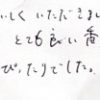 いしく いただきまし
とても良い香
ぴったりでした。